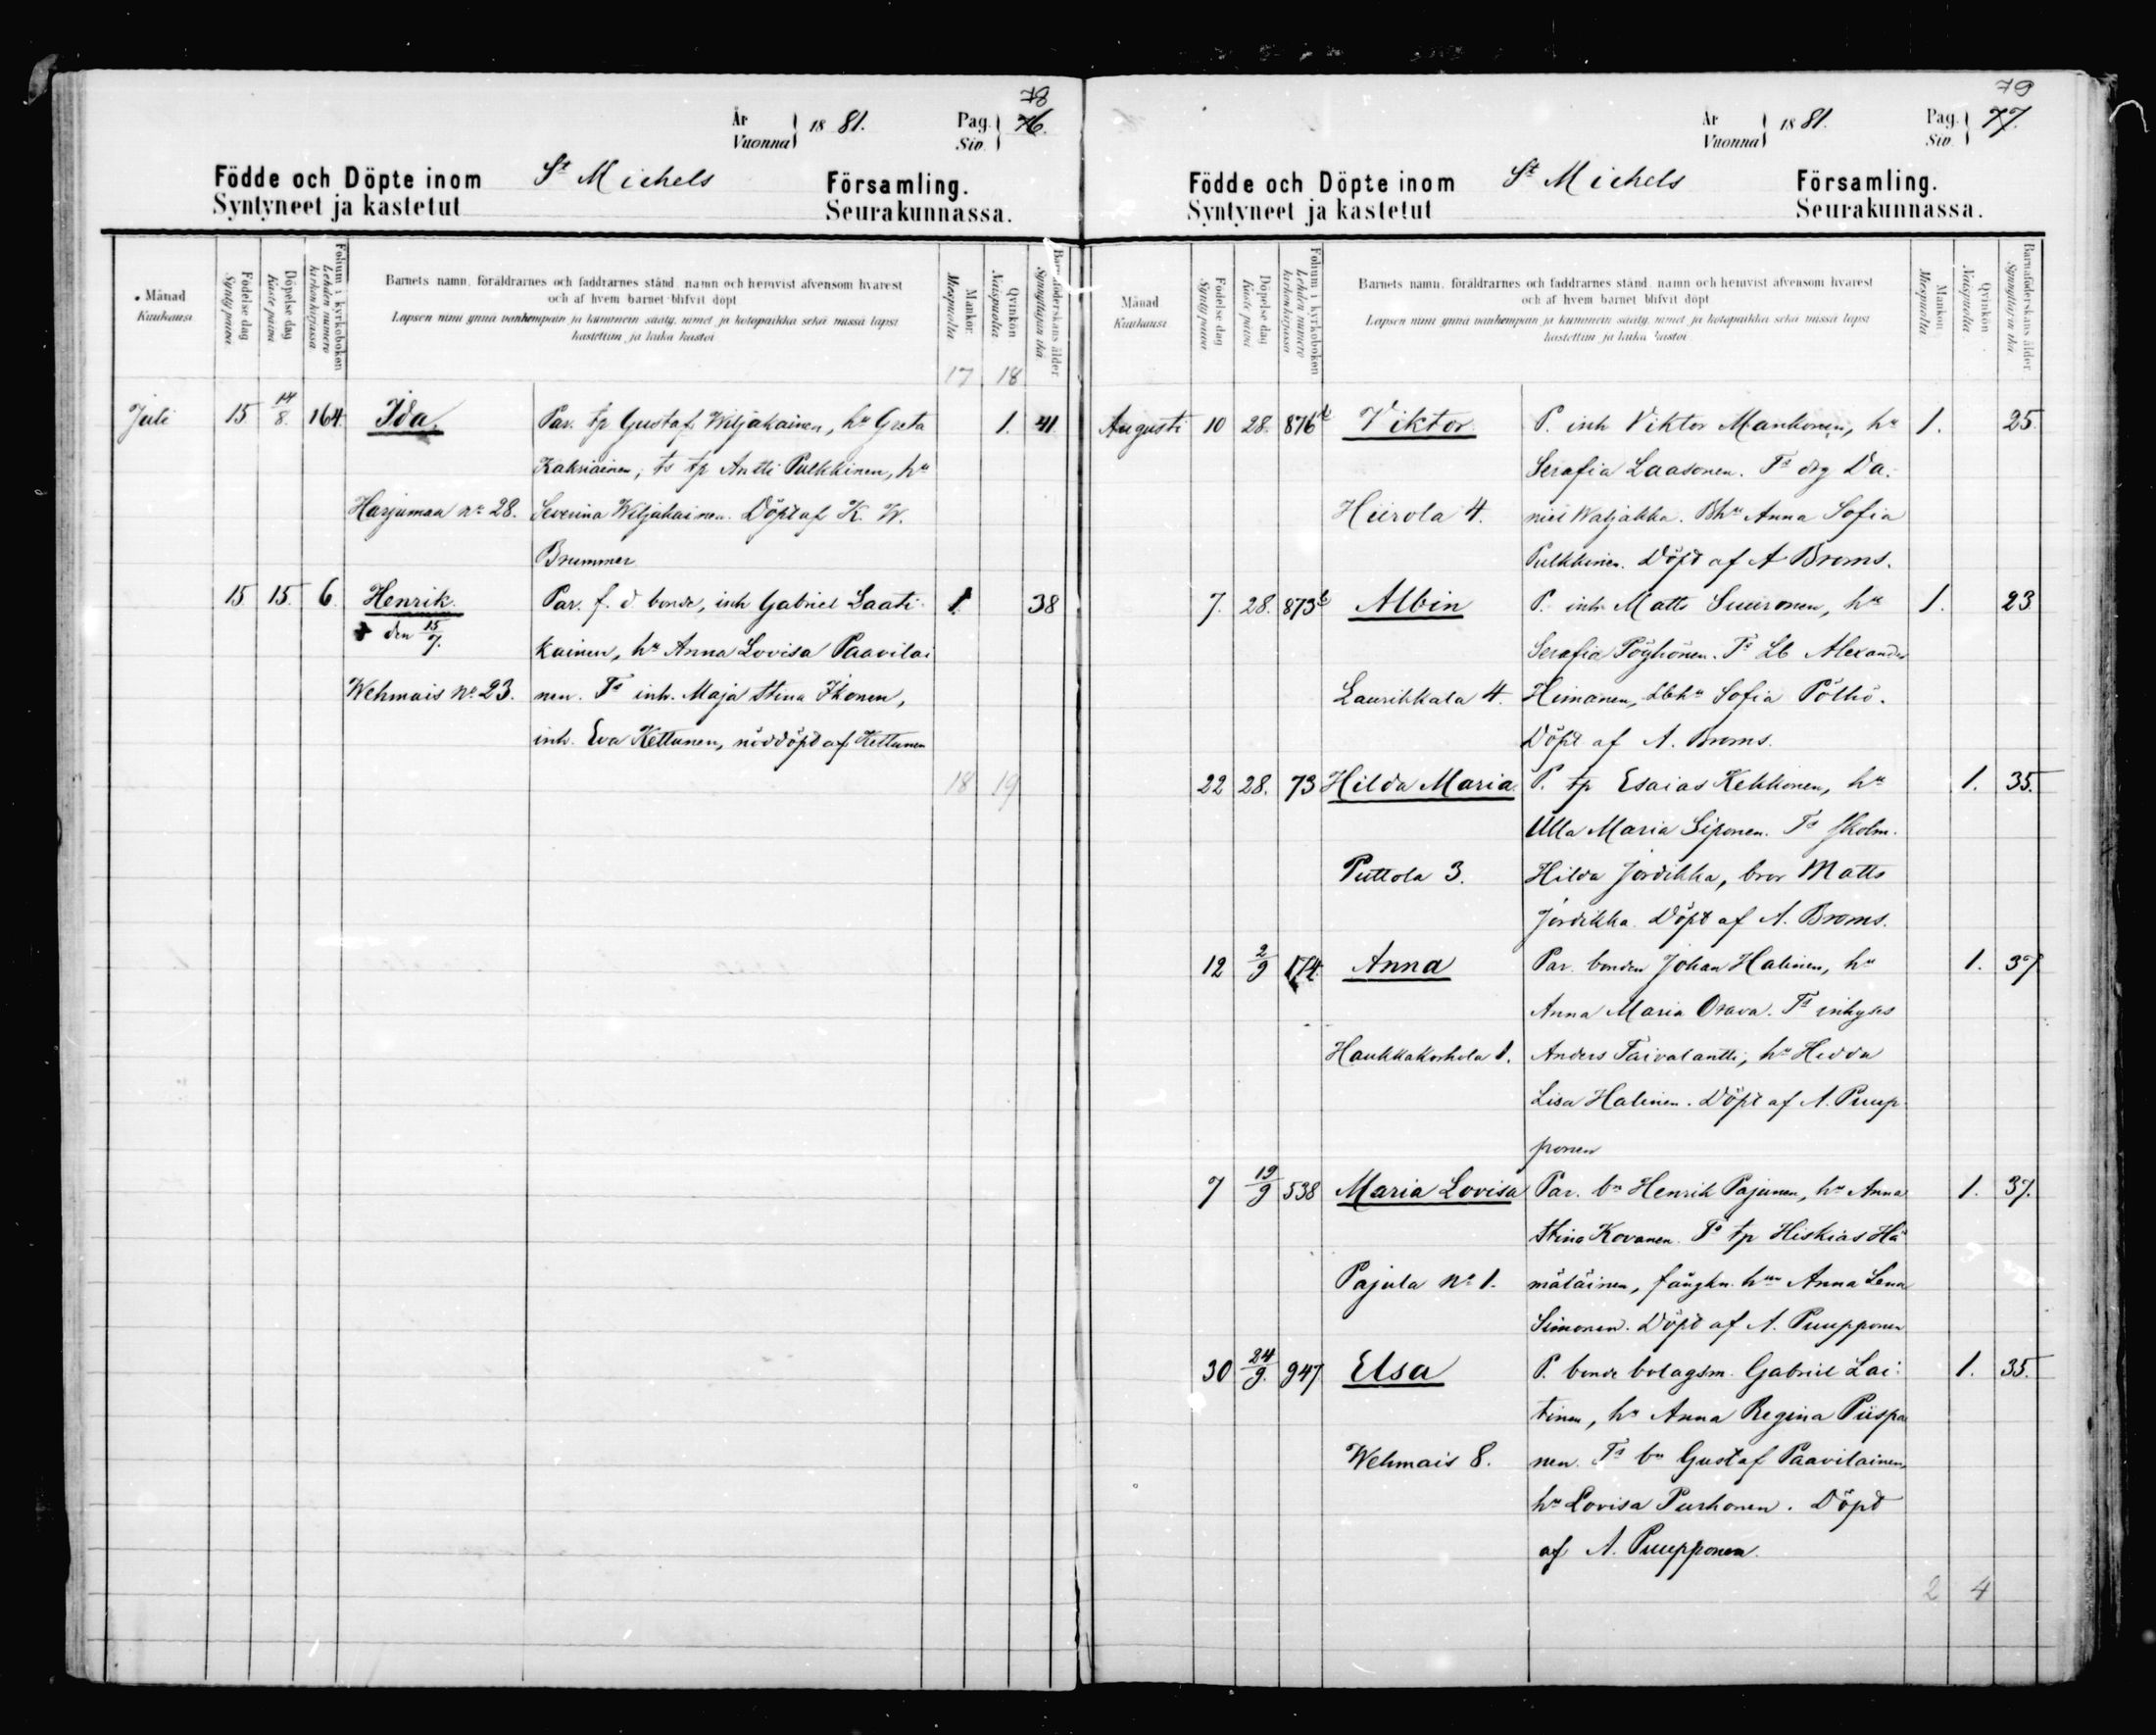 78
År Vuonna 1881. Pag. Siv. 76.
Födde och Döpte inom St Michels Församling.
Syntyneet ja kastetut Seurakunnassa.
Månad Kuukausi
Födelse dag Synty päivä
Döpelse dag Kaste päivä
Folium i kyrkoboken Lehden numero kirkonkirjassa
Barnets namn, föräldrarnes och faddrarnes stånd, namn och hemvist äfvensom hvarest
och af hvem barnet blifvit döpt
Lapsen nimi ynnä vanhempain ja kummein sääty, nimet ja kotopaikka sekä missä lapsi
kastettiin ja kuka kastoi
Mankön Miespuolia
Qvinkön Naispuolia
Barnaföderskans ålder Synnyttäjän ikä
17 18
Juli 15 14/8. 164 Ida. Par. tp Gustaf Wiljakainen, hu Greta 1. 41
Kaksiainen, ts tp Antti Pulkkinen, hu
Harjumaa No 28. Severina Wiljakainen. Döpt af K. W.
Brummer
15 15. 6. Henrik. Par. f. d. bonde, inh Gabriel Laati- 1. 38
† den 15/7. kainen, hu Anna Lovisa Paavilai
Wehmais No 23. nen. Ts inh. Maja Stina Ikonen,
inh. Eva Kettunen, nöddöpt af Kettunen
18 19
79
År Vuonna 1881. Pag. Siv. 77.
Födde och Döpte inom St Michels Församling.
Syntyneet ja kastetut Seurakunnassa.
Månad Kuukausi
Födelse dag Synty päivä
Döpelse dag Kaste päivä
Folium i kyrkoboken Lehden numero kirkonkirjassa
Barnets namn, föräldrarnes och faddrarnes stånd, namn och hemvist äfvensom hvarest
och af hvem barnet blifvit döpt
Lapsen nimi ynnä vanhempain ja kummein sääty, nimet ja kotopaikka sekä missä lapsi
kastettiin ja kuka kastoi
Mankön Miespuolia
Qvinkön Naispuolia
Barnaföderskans ålder Synnyttäjän ikä
Augusti 10 28. 876 Viktor P. inh Viktor Mankonen, hu 1. 25
Serafia Laasonen. Ts drg Da-
Hiirola 4. niel Watjakka. Bhu Anna Sofia
Pulkkinen. Döpt af A Broms.
7. 28. 873 Albin P. inh Matts Suuronen, hu 1. 23
Serafia Pöyhönen. Ts Lb Alexander
Laurikkala 4. Heimonen, Lbhu Sofia Pöthö.
Döpt af A. Broms.
22 28. 73 Hilda Maria P. tp Esaias Kekkonen, hu 1. 35.
Ulla Maria Siponen. Ts skolm.
Puttola 3. Hilda Jordikka, bror Matts
Jordikka. Döpt af A. Broms.
12 2/9 174. Anna Par. bonden Johan Halinen, hu 1. 37
Anna Maria Orava. Ts inhyses
Haukkakorhola 1. Anders Taivalantti, hu Hedda
Lisa Halinen. Döpt af A. Puup-
ponen
7 19/9 538 Maria Lovisa Par. bn Henrik Pajunen, hu Anna 1. 37.
Stina Kovanen. Ts tp Hiskias Hä
Pajula No 1. mäläinen, fångkn. hu Anna Lena
Simonen. Döpt af A. Puupponen
30 24/9. 947. Elsa P. bonde bolagsm. Gabriel Lai- 1. 35.
tinen, hu Anna Regina Piispa
Wehmais 8. nen. Ts bn Gustaf Paavilainen,
hu Lovisa Purhonen. Döpt
af A. Puupponen.
2 4